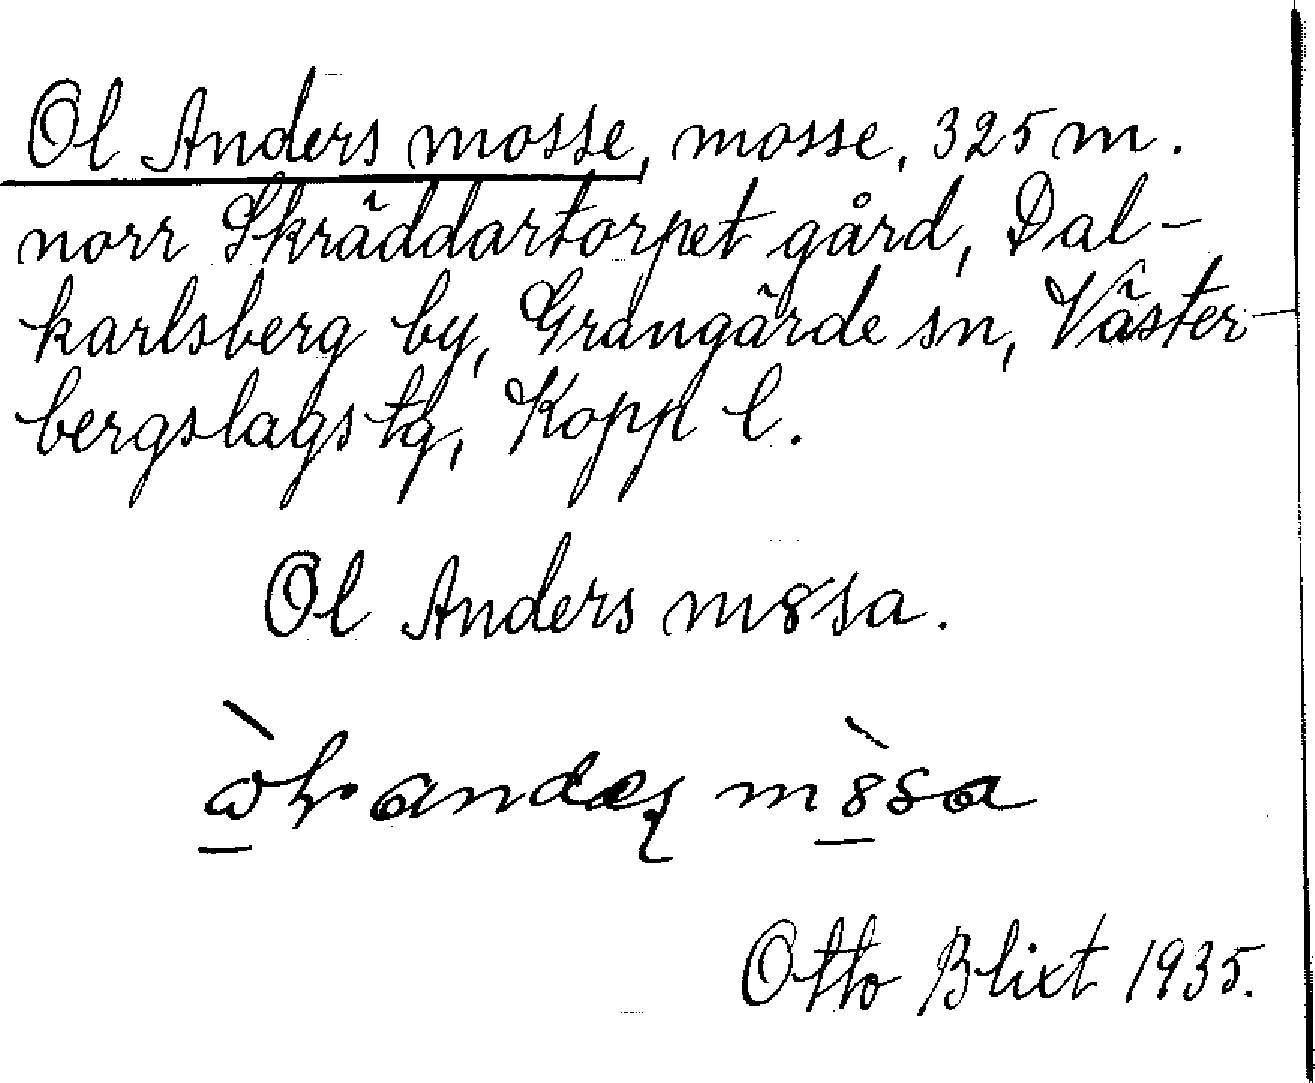 Ol Anders mosse, mosse, 325 m.
norr Skräddartorpet gård, Dal-
karlsberg by, Grangärde sn, Väster-
bergslags tg, Kopp l.
Ol Anders m8sa.
m8̀sa
Otto Blixt 1935.